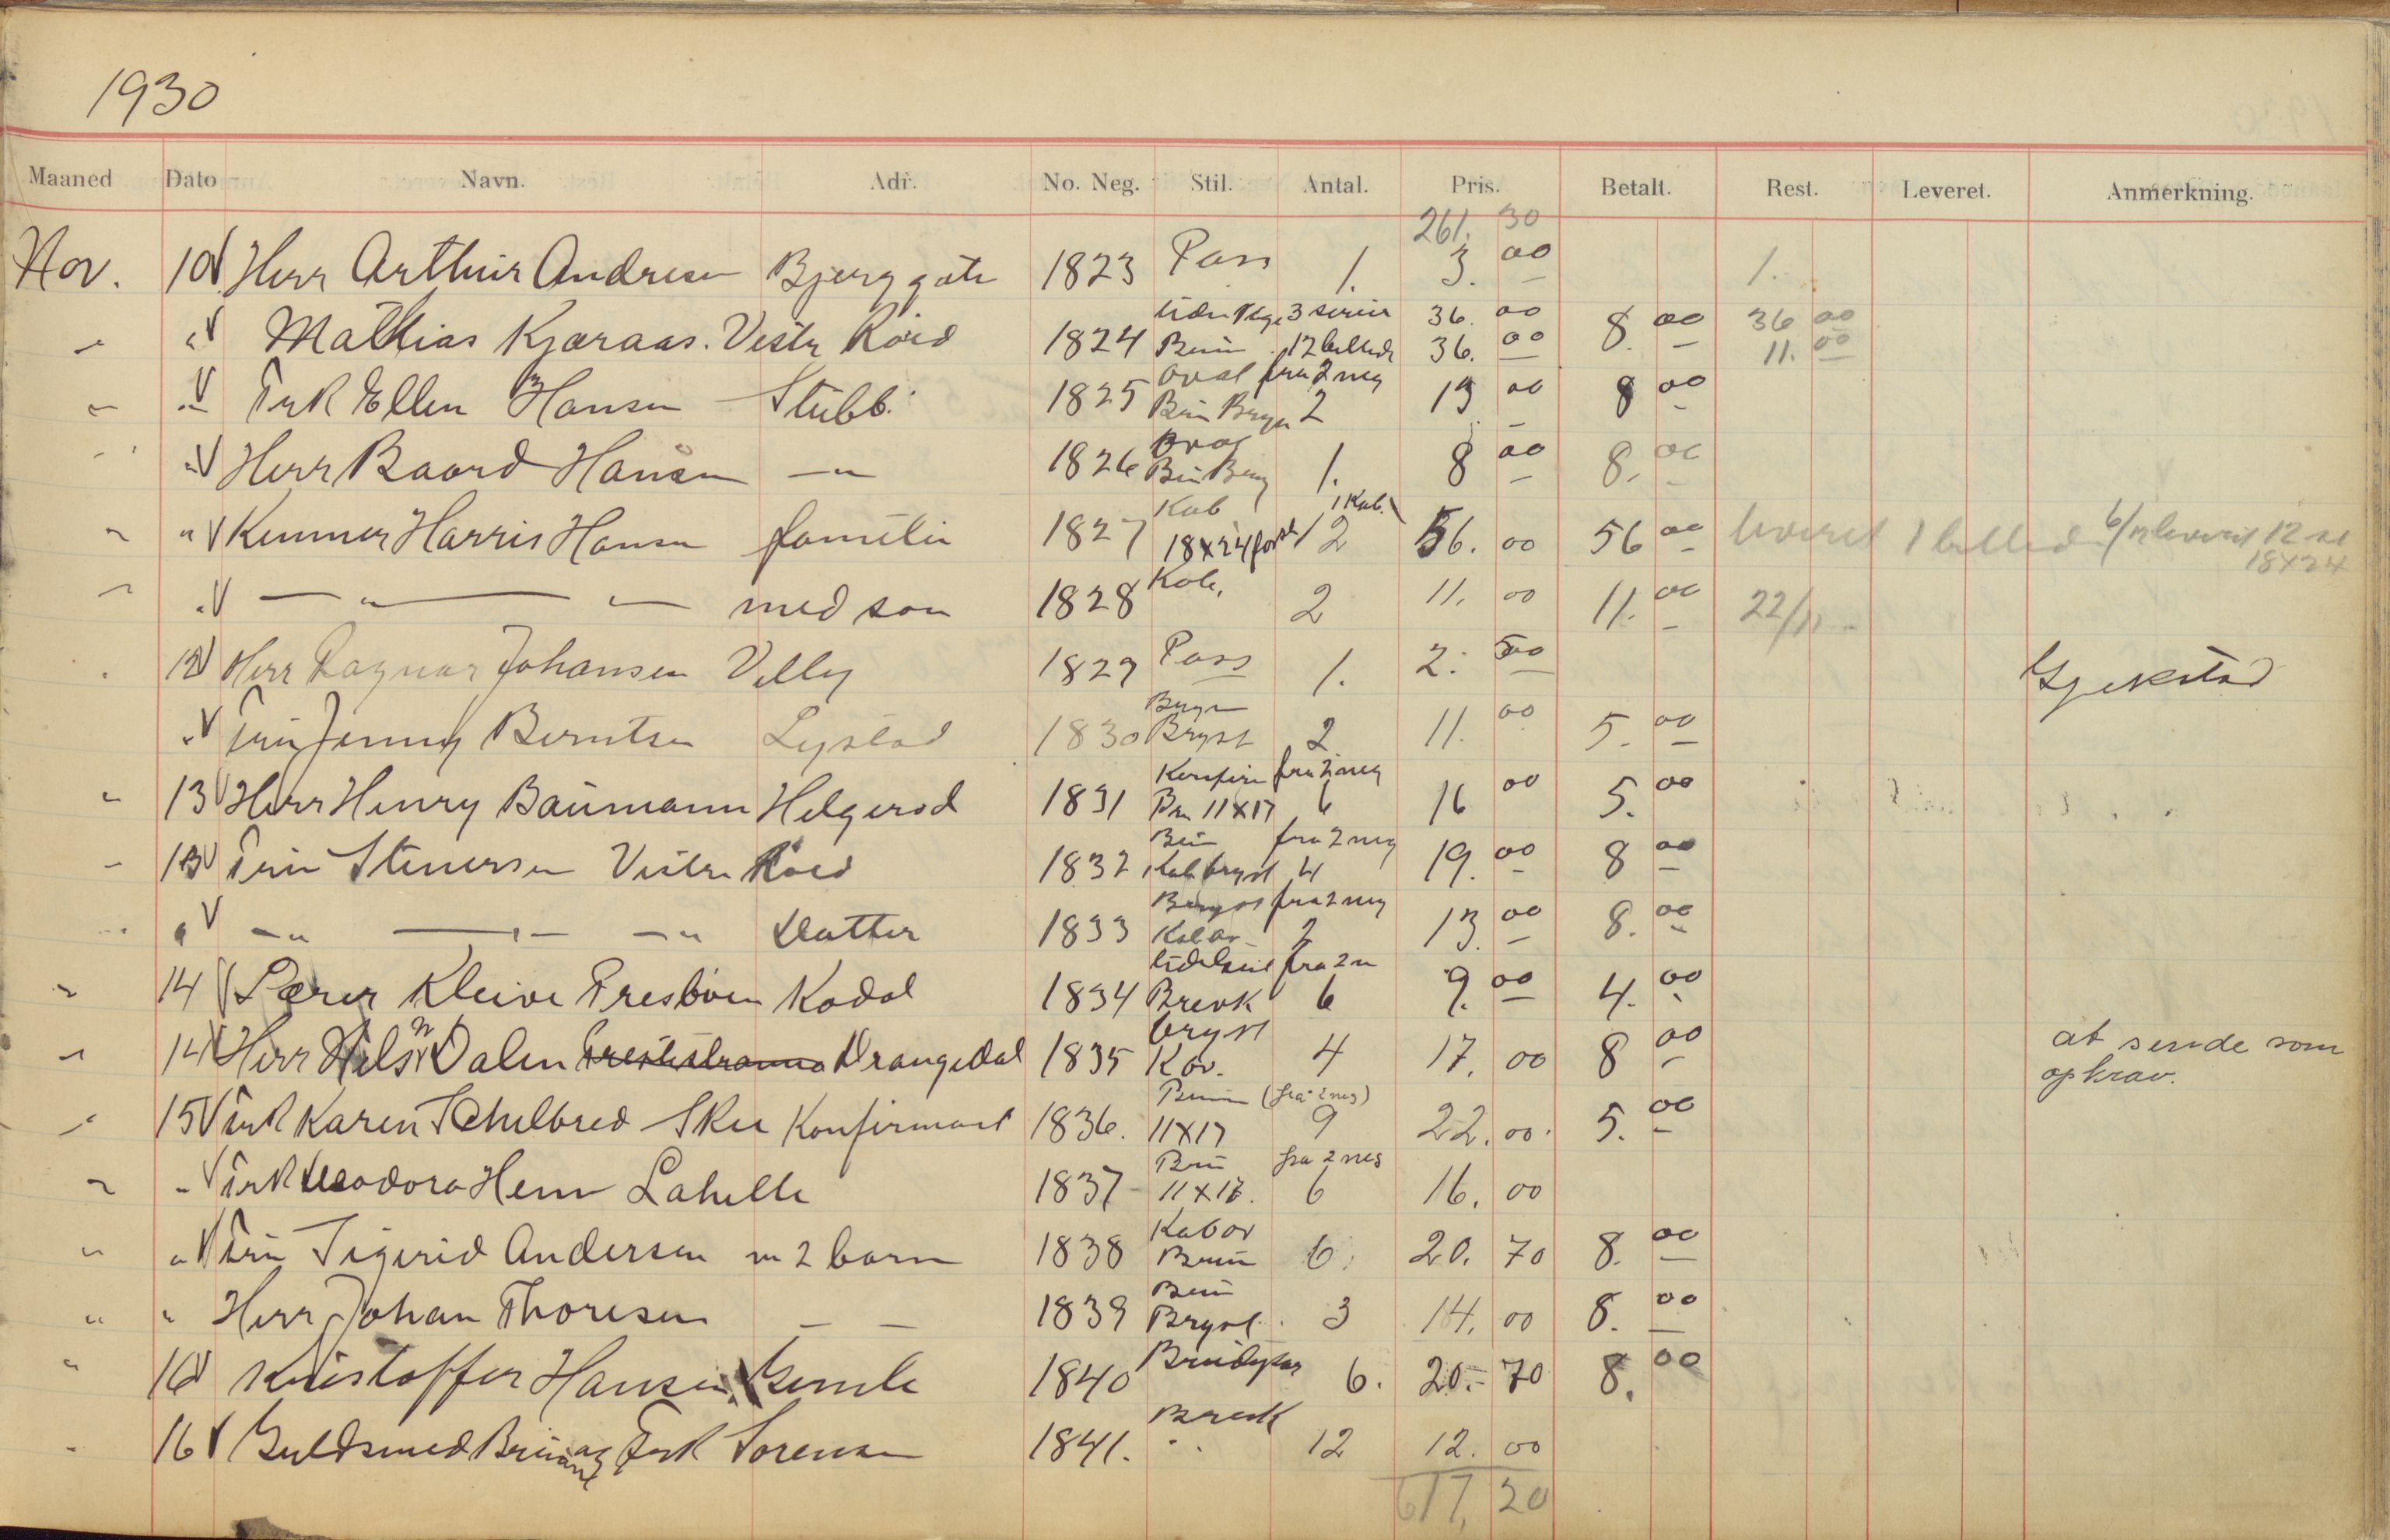 1930
Maaned Dato Navn. Adr. No. Neg. Stil. Antal. Pris. Betalt. Rest. Leveret. Anmerkning.
261. 30
Nov. 10 Herr Arthur Andresen Bjerggate 1823 Pass 1. 3. 00 1.
3 serier 36. 00 36 00
" Mathias Kjæraas. Vestre Roed 1824 Brun 12 billeder 36. 00 8. 00 11. 00
Oval fra 2 neg
" Frk Ellen Hansen Stubb. 1825 2 13 00 8 00
Oval
" Herr Baard Hansen — " 1826 1. 8 00 8. 00
Kab 1 Kab.
" Harris Hansen familie 1827 18x24 12 56. 00 56 00 leveret 1 billed 6/12 leveret 12 st
18x24
" — " — " — med søn 1828 Kab. 2 11. 00 11. 00 22/11
12 Herr Ragnar Johansen Velly 1829 Pass 1. 2. 50 Gjekstad
" Fru Jenny Berntsen Lystad 1830 Bryst 2 11. 00 5. 00
Konfir fra 2 neg
13 Herr Henry Baumann Helgerød 1831 Br 11x17 6 16 00 5. 00
Brun fra 2 neg
13 Fru Stenersen Vestre Roed 1832 Kab bryst 4 19. 00 8 00
fra 2 neg
" — " — " — " Datter 1833 Kab ov 2 13. 00 8. 00
fra 2 n
14 Lærer Kleive Fresbøen Kodal 1834 Brevk 6 9. 00 4. 00
bryst
14 Herr Nils N Dalen Drangedal 1835 Kov. 4 17. 00 8 00 at sende som
opkrav.
Brun (fra 2 neg)
15 Frk Karen Schelbred Skee Konfirmant 1836. 11x17 9 22. 00. 5. 00
Brun fra 2 neg
" Frk Teodora Hem Lahelle 1837 11x17. 6 16. 00
Kabov
" Fru Sigerid Andersen m 2 barn 1838 Brun 6. 20. 70 8. 00
Brun
" " Herr Johan Thoresen — — 1839 Bryst. 3 14. 00 8. 00
16 Kristoffer Hansen. Gemle 1840 Brudepar 6. 20.- 70 8. 00
Brevk
16 Guldsmed Bruun og Frk Sorensen 1841. 12 12. 00
617, 20